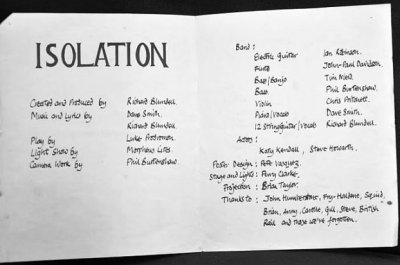 ISOLATION
Created and Produced by Richard Blundell.
Music and Lyrics by Dave Smith.
Richard Blundell.
Play by Luke
Light Show by Morpheus Lites.
Camera Work by Phil Burtenshaw.
Band:
Electric guitar Ian Robinson.
Flute John-Paul Davidson.
Bass/Banjo Tim
Bass. Phil Burtenshaw.
Violin Chris
Piano/Vocals Dave Smith.
12 String guitar/Vocals Richard Blundell.
Actors:
Katy Kendall, Steve Howarth.
Poster Design: Pete
Stage and Lights: Perry Clarke.
Projection: Brian Taylor.
Thanks to: John Humberstone, Fry-Haldane, Squid,
Brian, Anny, Carole, Gill, Steve, British
Rail and those we've forgotten.